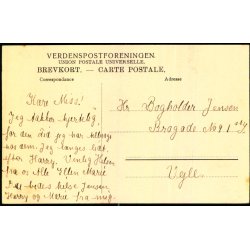 VERDENSPOSTFORENINGEN.
UNION POSTALE UNIVERSELLE.
BREVKORT. — CARTE POSTALE.
Correspondance
Adresse
Kære Miss!
Jeg takker hjertelig
for den Tid jeg har
hos dem. Jeg længes
efter Harry. Venlig Hilsen
fra os Alle Ellen Marie
hilse Jensen
Harry og Marie fra mig.
Hr Bogholder Jensen
Brogade No 9 1
Vejle.